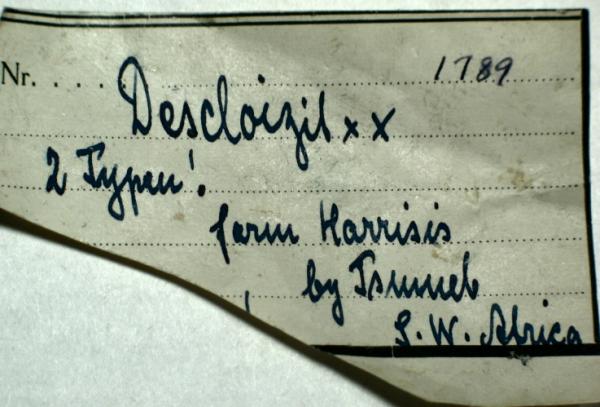 Nr. . . . . 1789
Descloizit xx
2 Typen!
farm Harrisis
by Tsumeb
S. W. Africa